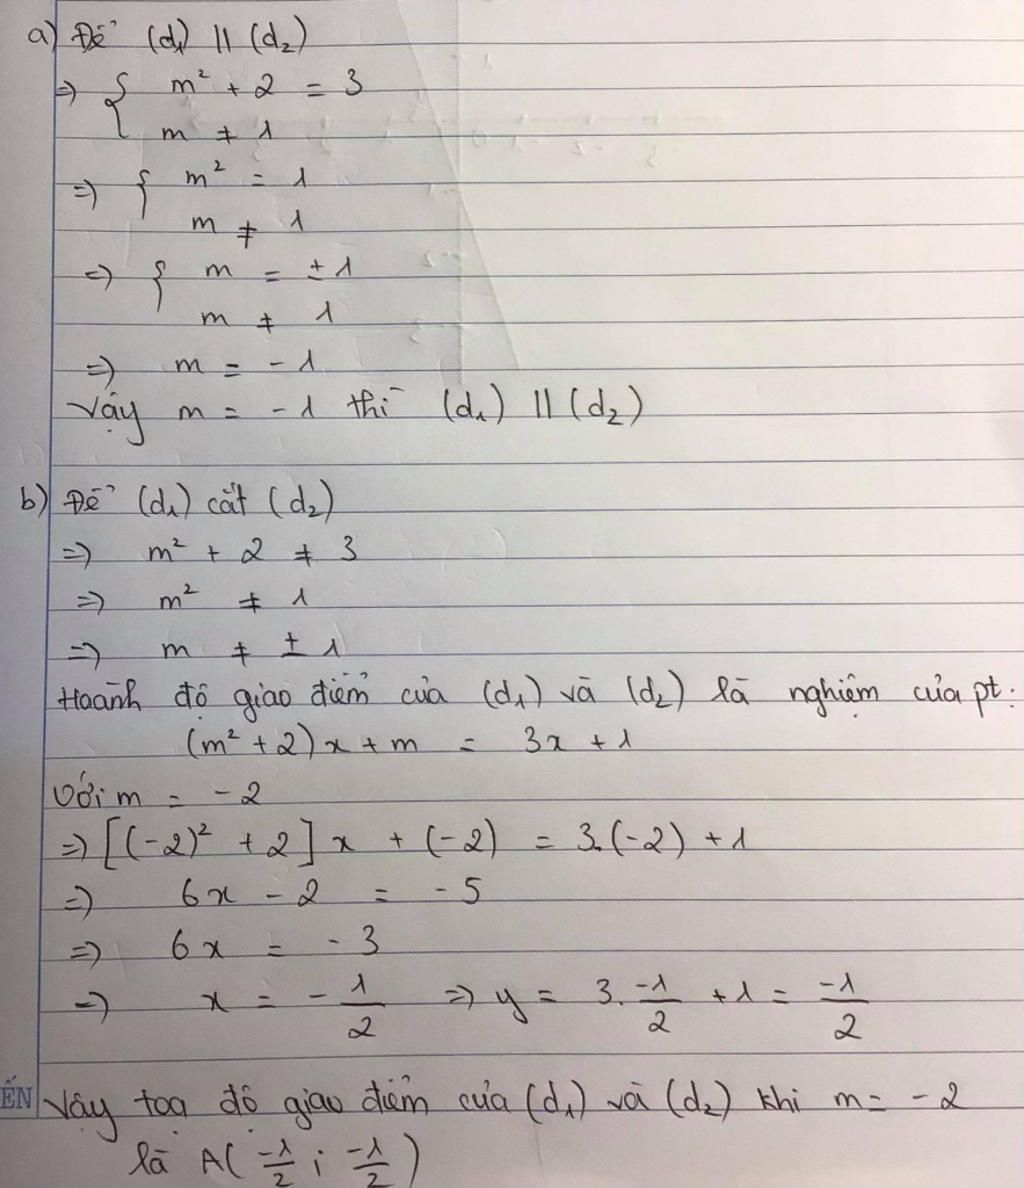 a) Để (d₁) || (d₂)
=> { m² + 2 = 3
m ≠ 1
=> { m² = 1
m ≠ 1
=> { m = ± 1
m ≠ 1
=> m = - 1
Vậy m = - 1 thì (d₁) || (d₂)
b) Để (d₁) cắt (d₂)
=> m² + 2 ≠ 3
=> m² ≠ 1
=> m ≠ ± 1
Hoành độ giao điểm của (d₁) và (d₂) là nghiệm của pt:
(m² + 2)x + m = 3x + 1
Với m = - 2
=> [(-2)² + 2] x + (-2) = 3.(-2) + 1
=> 6x - 2 = - 5
=> 6x = - 3
=> x = - 1/2 => y = 3. -1/2 + 1 = -1/2
ẾN Vậy toạ độ giao điểm của (d₁) và (d₂) khi m = - 2
là A( -1/2 ; -1/2 )